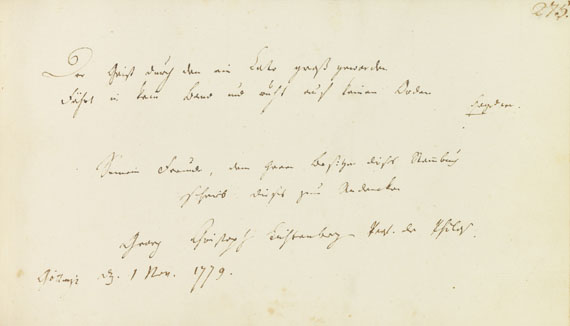 275.
Der Geist durch den ein Cato groß geworden
Fährt in kein Band und ruht auf keinem Orden
Haller.
Seinem Freunde, dem Herrn Besitzer dieses Stammbuchs
schrieb dieses zum Andencken
Georg Christoph Lichtenberg Prof. der Philos.
Göttingen d. 1 Nov. 1779.